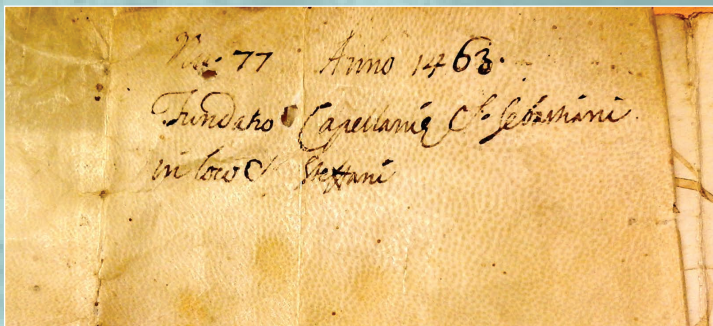 Nu: 77 Anno 1463.
Fundatio Capellanię S. Sebastiani
in loco S. Steffani